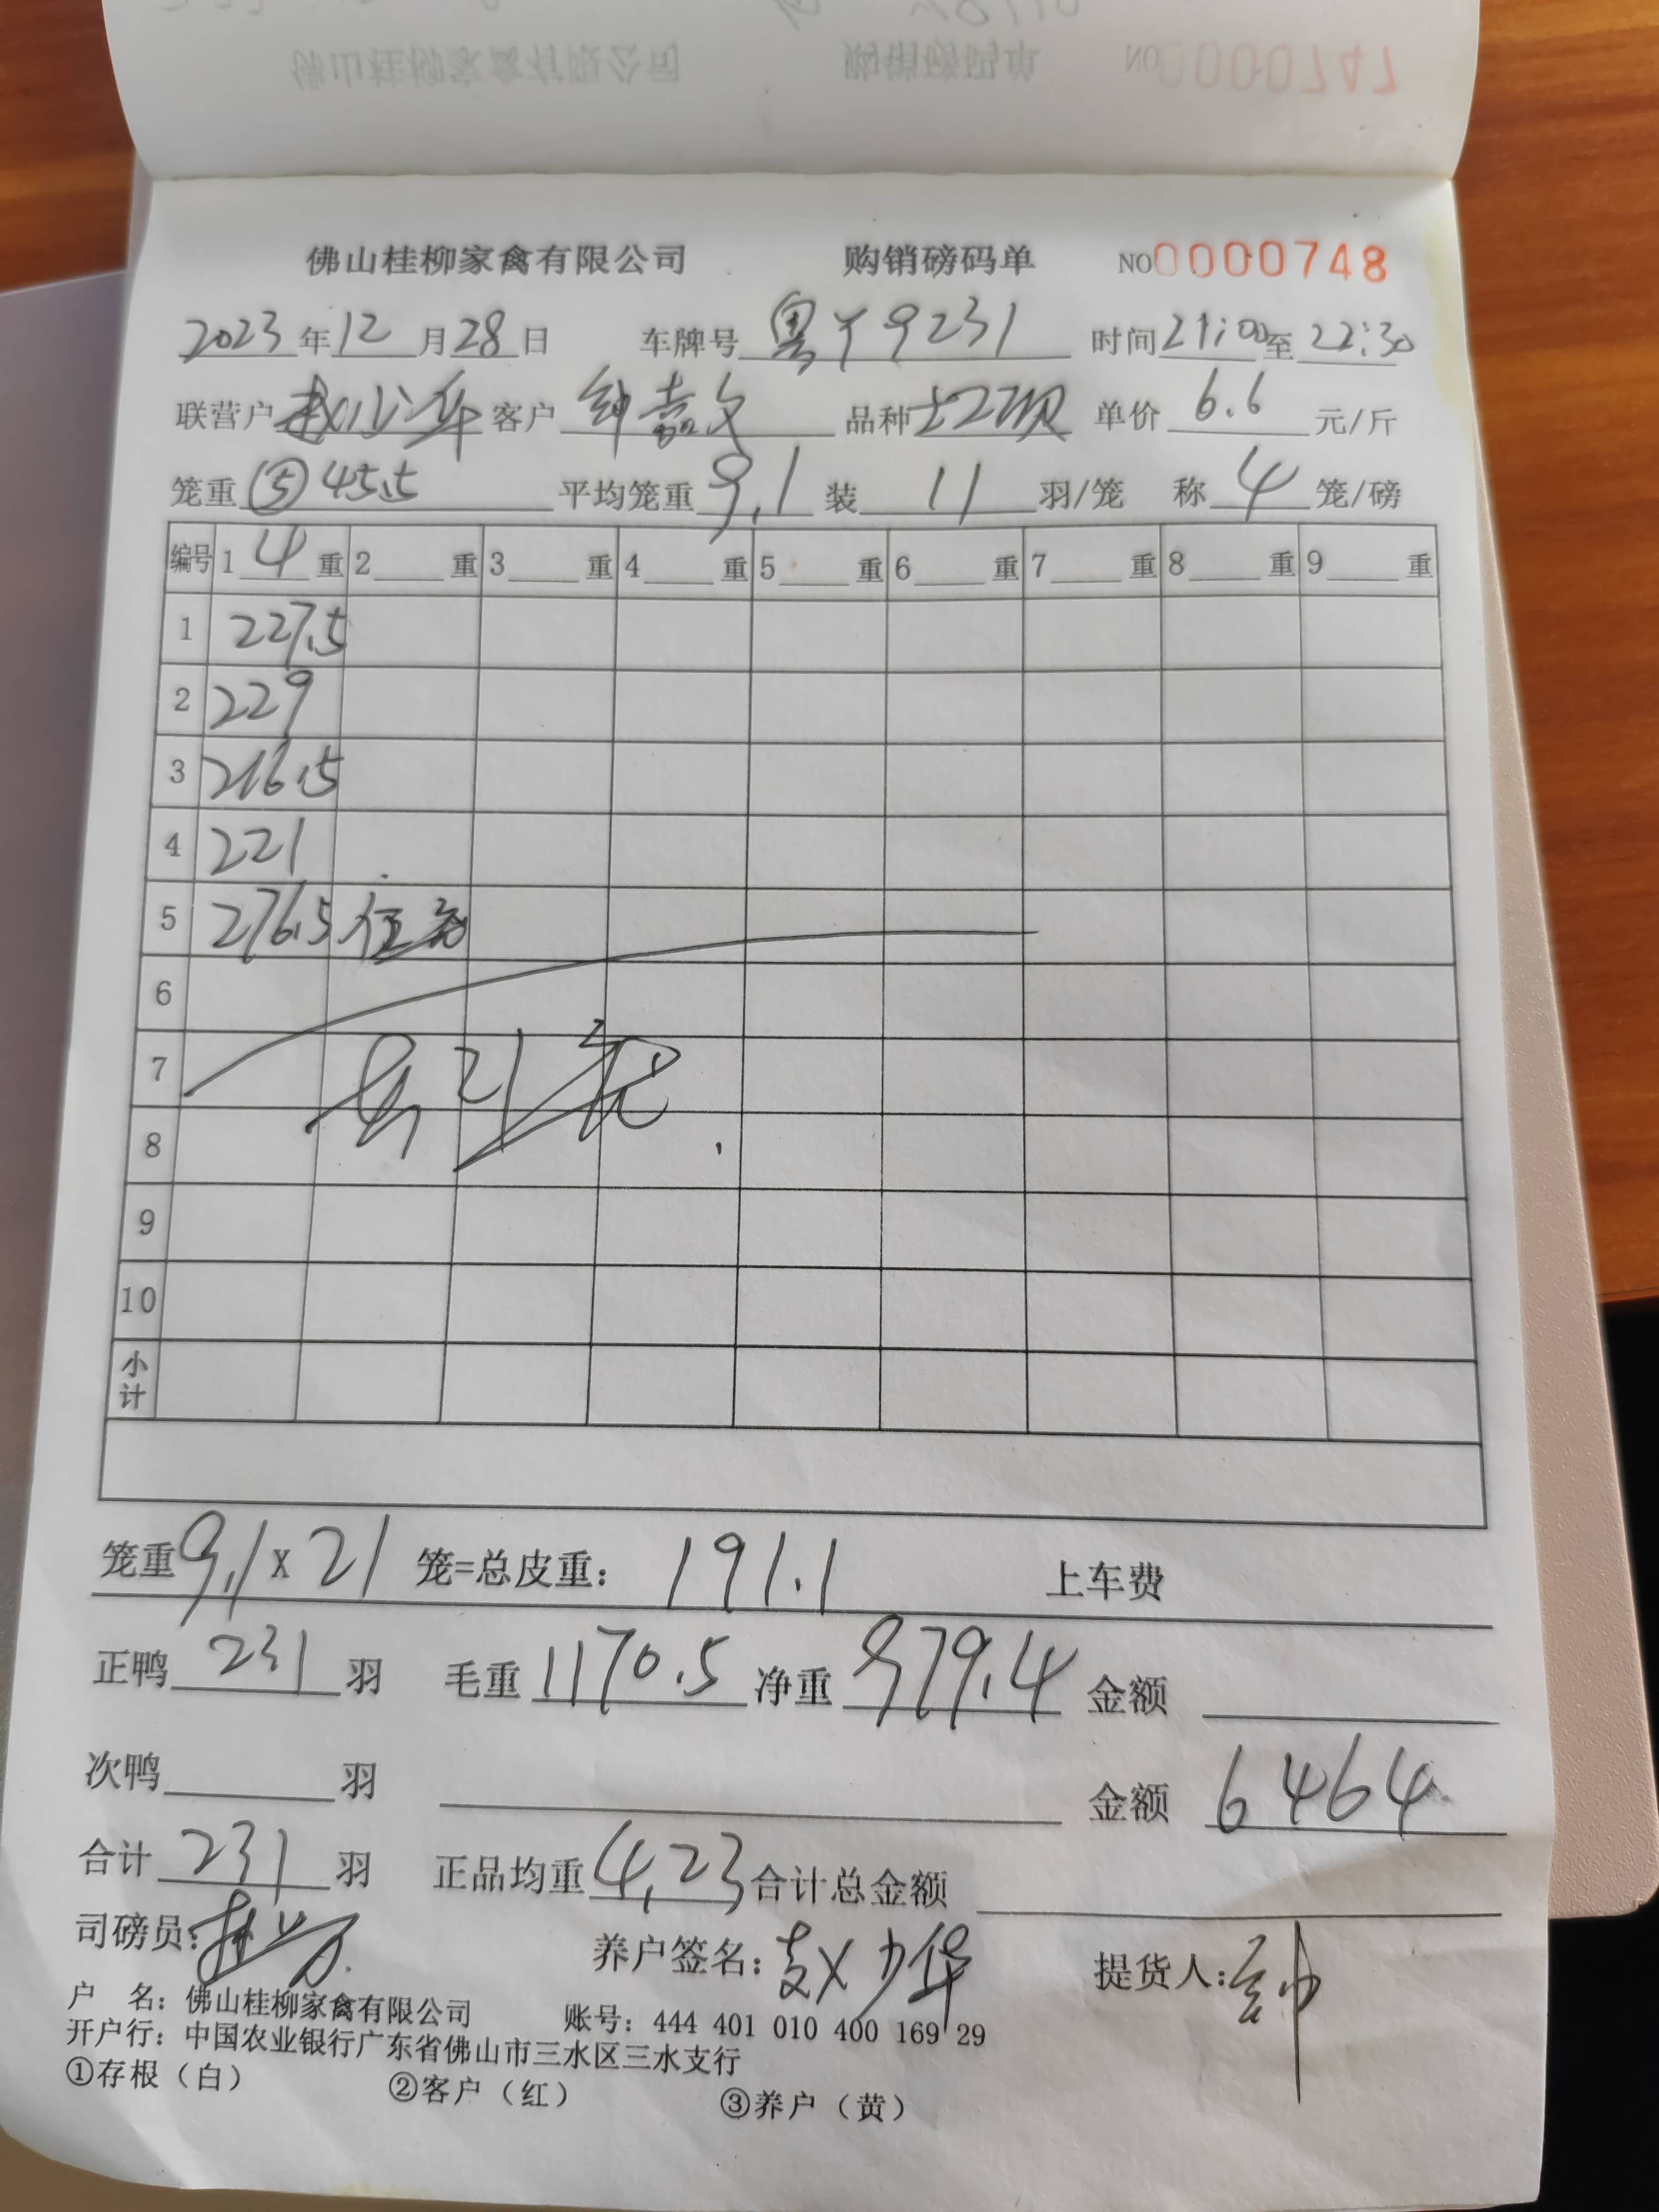 佛山桂柳家禽有限公司 购销磅码单 NO 0000747
佛山桂柳家禽有限公司 购销磅码单 NO 0000748
2023年12月28日 车牌号 粤Y9231 时间 21:00 至 22:30
联营户 赵少华 客户 钟嘉文 品种 土2项 单价 6.6 元/斤
笼重 ⑤45.5 平均笼重 9.1 装 11 羽/笼 称 4 笼/磅
编号 1 4 重 2 重 3 重 4 重 5 重 6 重 7 重 8 重 9 重
1 227.5
2 229
3 216.5
4 221
5 276.5 伍笼
6
7 共21笼
8
9
10
小计
笼重 9.1 X 21 笼=总皮重: 191.1 上车费
正鸭 231 羽 毛重 1170.5 净重 979.4 金额
次鸭 羽 金额 6464
合计 231 羽 正品均重 4.23 合计总金额
司磅员: 养户签名: 赵少华 提货人: 钟
户 名: 佛山桂柳家禽有限公司 账号: 444 401 010 400 169 29
开户行: 中国农业银行广东省佛山市三水区三水支行
①存根（白） ②客户（红） ③养户（黄）